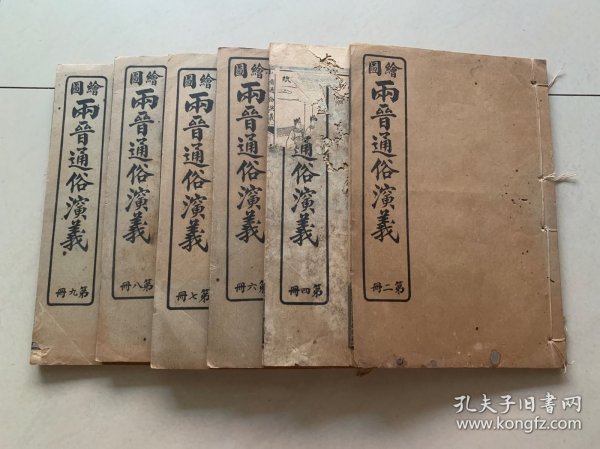 繪圖
兩晉通俗演義
第二冊
通俗演義
第四冊
繪圖
兩晉通俗演義
第六冊
繪圖
兩晉通俗演義
第七冊
繪圖
兩晉通俗演義
第八冊
繪圖
兩晉通俗演義
第九冊
孔夫子旧书网
www.kongfz.com